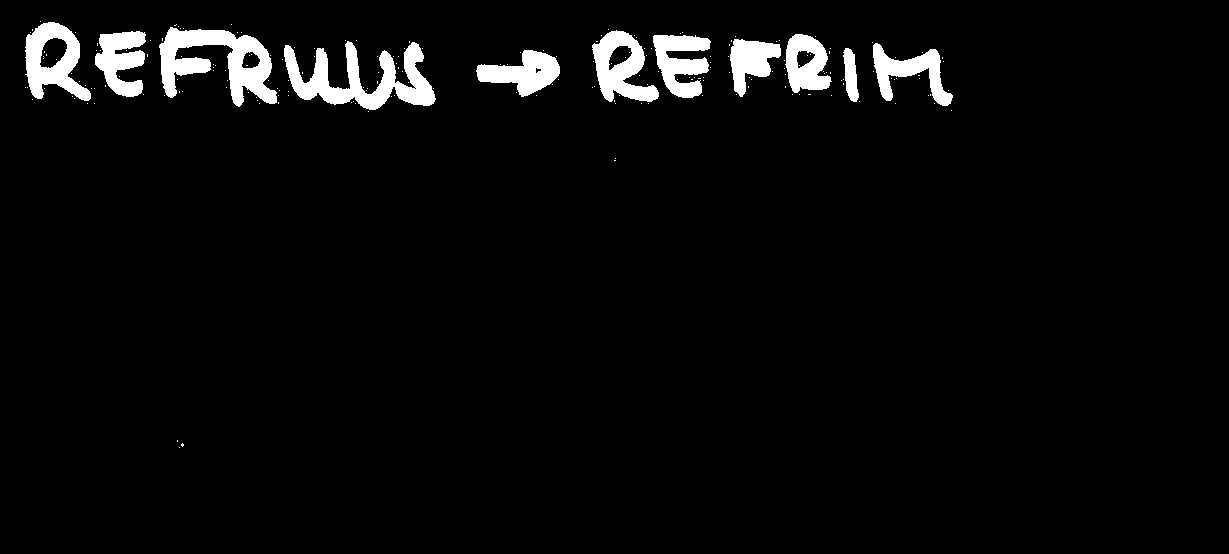 REFRUUS → REFRIM